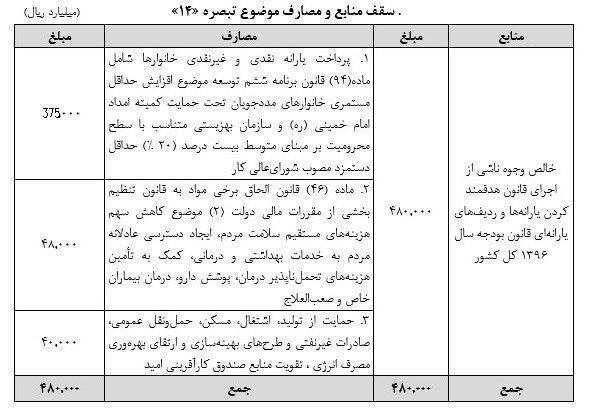 . سقف منابع و مصارف موضوع تبصره «۱۴» (میلیارد ریال)
منابع مبلغ مصارف مبلغ
خالص وجوه ناشی از
اجرای قانون هدفمند
کردن یارانه‌ها و ردیف‌های
یارانه‌ای قانون بودجه سال
۱۳۹۶ کل کشور
۴۸۰,۰۰۰
۱. پرداخت یارانه نقدی و غیرنقدی خانوارها شامل
ماده(۹۴) قانون برنامه ششم توسعه موضوع افزایش حداقل
مستمری خانوارهای مددجویان تحت حمایت کمیته امداد
امام خمینی (ره) و سازمان بهزیستی متناسب با سطح
محرومیت بر مبنای متوسط بیست درصد (۲۰ ٪) حداقل
دستمزد مصوب شورای‌عالی کار
375۰۰۰
۲. ماده (۴۶) قانون الحاق برخی مواد به قانون تنظیم
بخشی از مقررات مالی دولت (۲) موضوع کاهش سهم
هزینه‌های مستقیم سلامت مردم، ایجاد دسترسی عادلانه
مردم به خدمات بهداشتی و درمانی، کمک به تأمین
هزینه‌های تحمل‌ناپذیر درمان، پوشش دارو، درمان بیماران
خاص و صعب‌العلاج
۴۸,۰۰۰
۳. حمایت از تولید، اشتغال، مسکن، حمل‌ونقل عمومی،
صادرات غیرنفتی و طرح‌های بهینه‌سازی و ارتقای بهره‌وری
مصرف انرژی ، تقویت منابع صندوق کارآفرینی امید
۴۰,۰۰۰
جمع ۴۸۰,۰۰۰ جمع ۴۸۰,۰۰۰